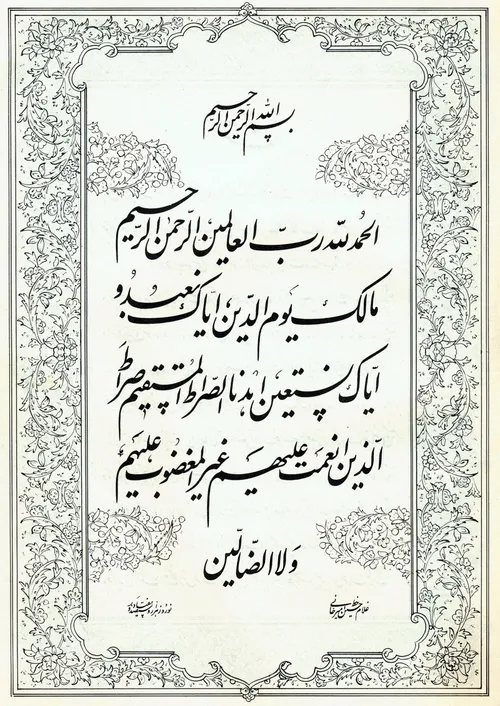 بسم الله الرحمن الرحیم
الحمد لله رب العالمین الرحمن الرحیم
مالک یوم الدین ایاک نعبد و
ایاک نستعین اهدنا الصراط المستقیم صراط
الذین انعمت علیهم غیر المغضوب علیهم
و لا الضالین